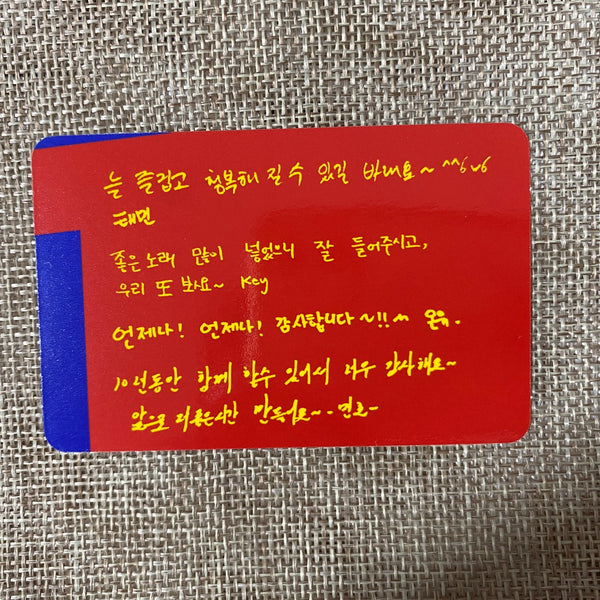 늘 즐겁고 행복해 질 수 있길 바래요~ ^^
태민
좋은 노래 많이 넣었으니 잘 들어주시고,
우리 또 봐요~ Key
언제나! 언제나! 감사합니다~!! ^^ 온유.
10년동안 함께 할수 있어서 너무 감사해요~
앞으로 더 좋은시간 만들어요~. 민호-